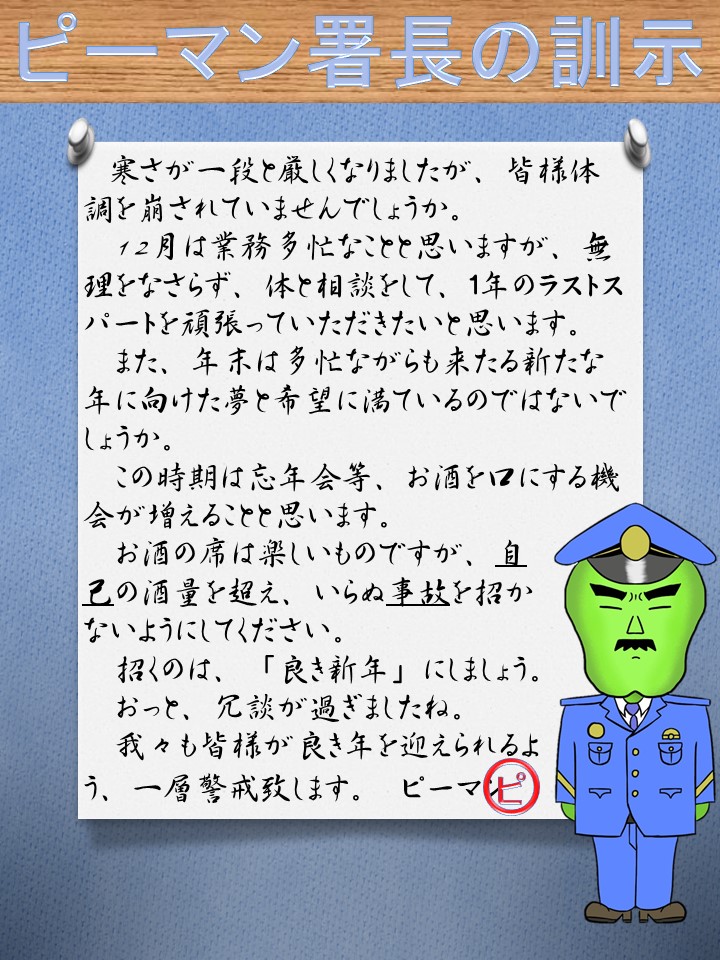 ピーマン署長の訓示
寒さが一段と厳しくなりましたが、皆様体
調を崩されていませんでしょうか。
12月は業務多忙なことと思いますが、無
理をなさらず、体と相談をして、1年のラストス
パートを頑張っていただきたいと思います。
また、年末は多忙ながらも来たる新たな
年に向けた夢と希望に満ているのではないで
しょうか。
この時期は忘年会等、お酒を口にする機
会が増えることと思います。
お酒の席は楽しいものですが、自
己の酒量を超え、いらぬ事故を招か
ないようにしてください。
招くのは、「良き新年」にしましょう。
おっと、冗談が過ぎましたね。
我々も皆様が良き年を迎えられるよ
う、一層警戒致します。 ピーマン
ピ